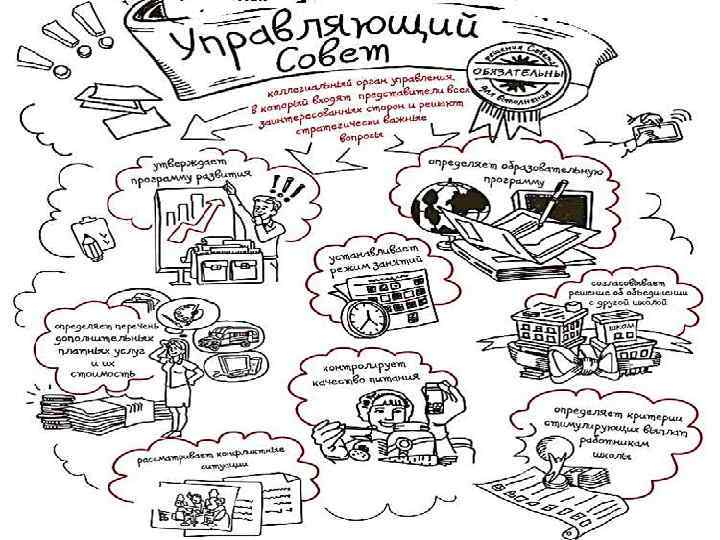 Управляющий
Совет
решения Совета
ОБЯЗАТЕЛЬНЫ
для выполнения
коллегиальный орган управления,
в который входят представители всех
заинтересованных сторон и решают
стратегически важные
вопросы
утверждает
программу развития
!!!
определяет образовательную
программу
устанавливает
режим занятий
согласовывает
решение об объединении
с другой школой
школа
определяет перечень
дополнительных
платных услуг
и их
стоимость
контролирует
качество питания
определяет критерии
стимулирующих выплат
работникам
школы
рассматривает конфликтные
ситуации